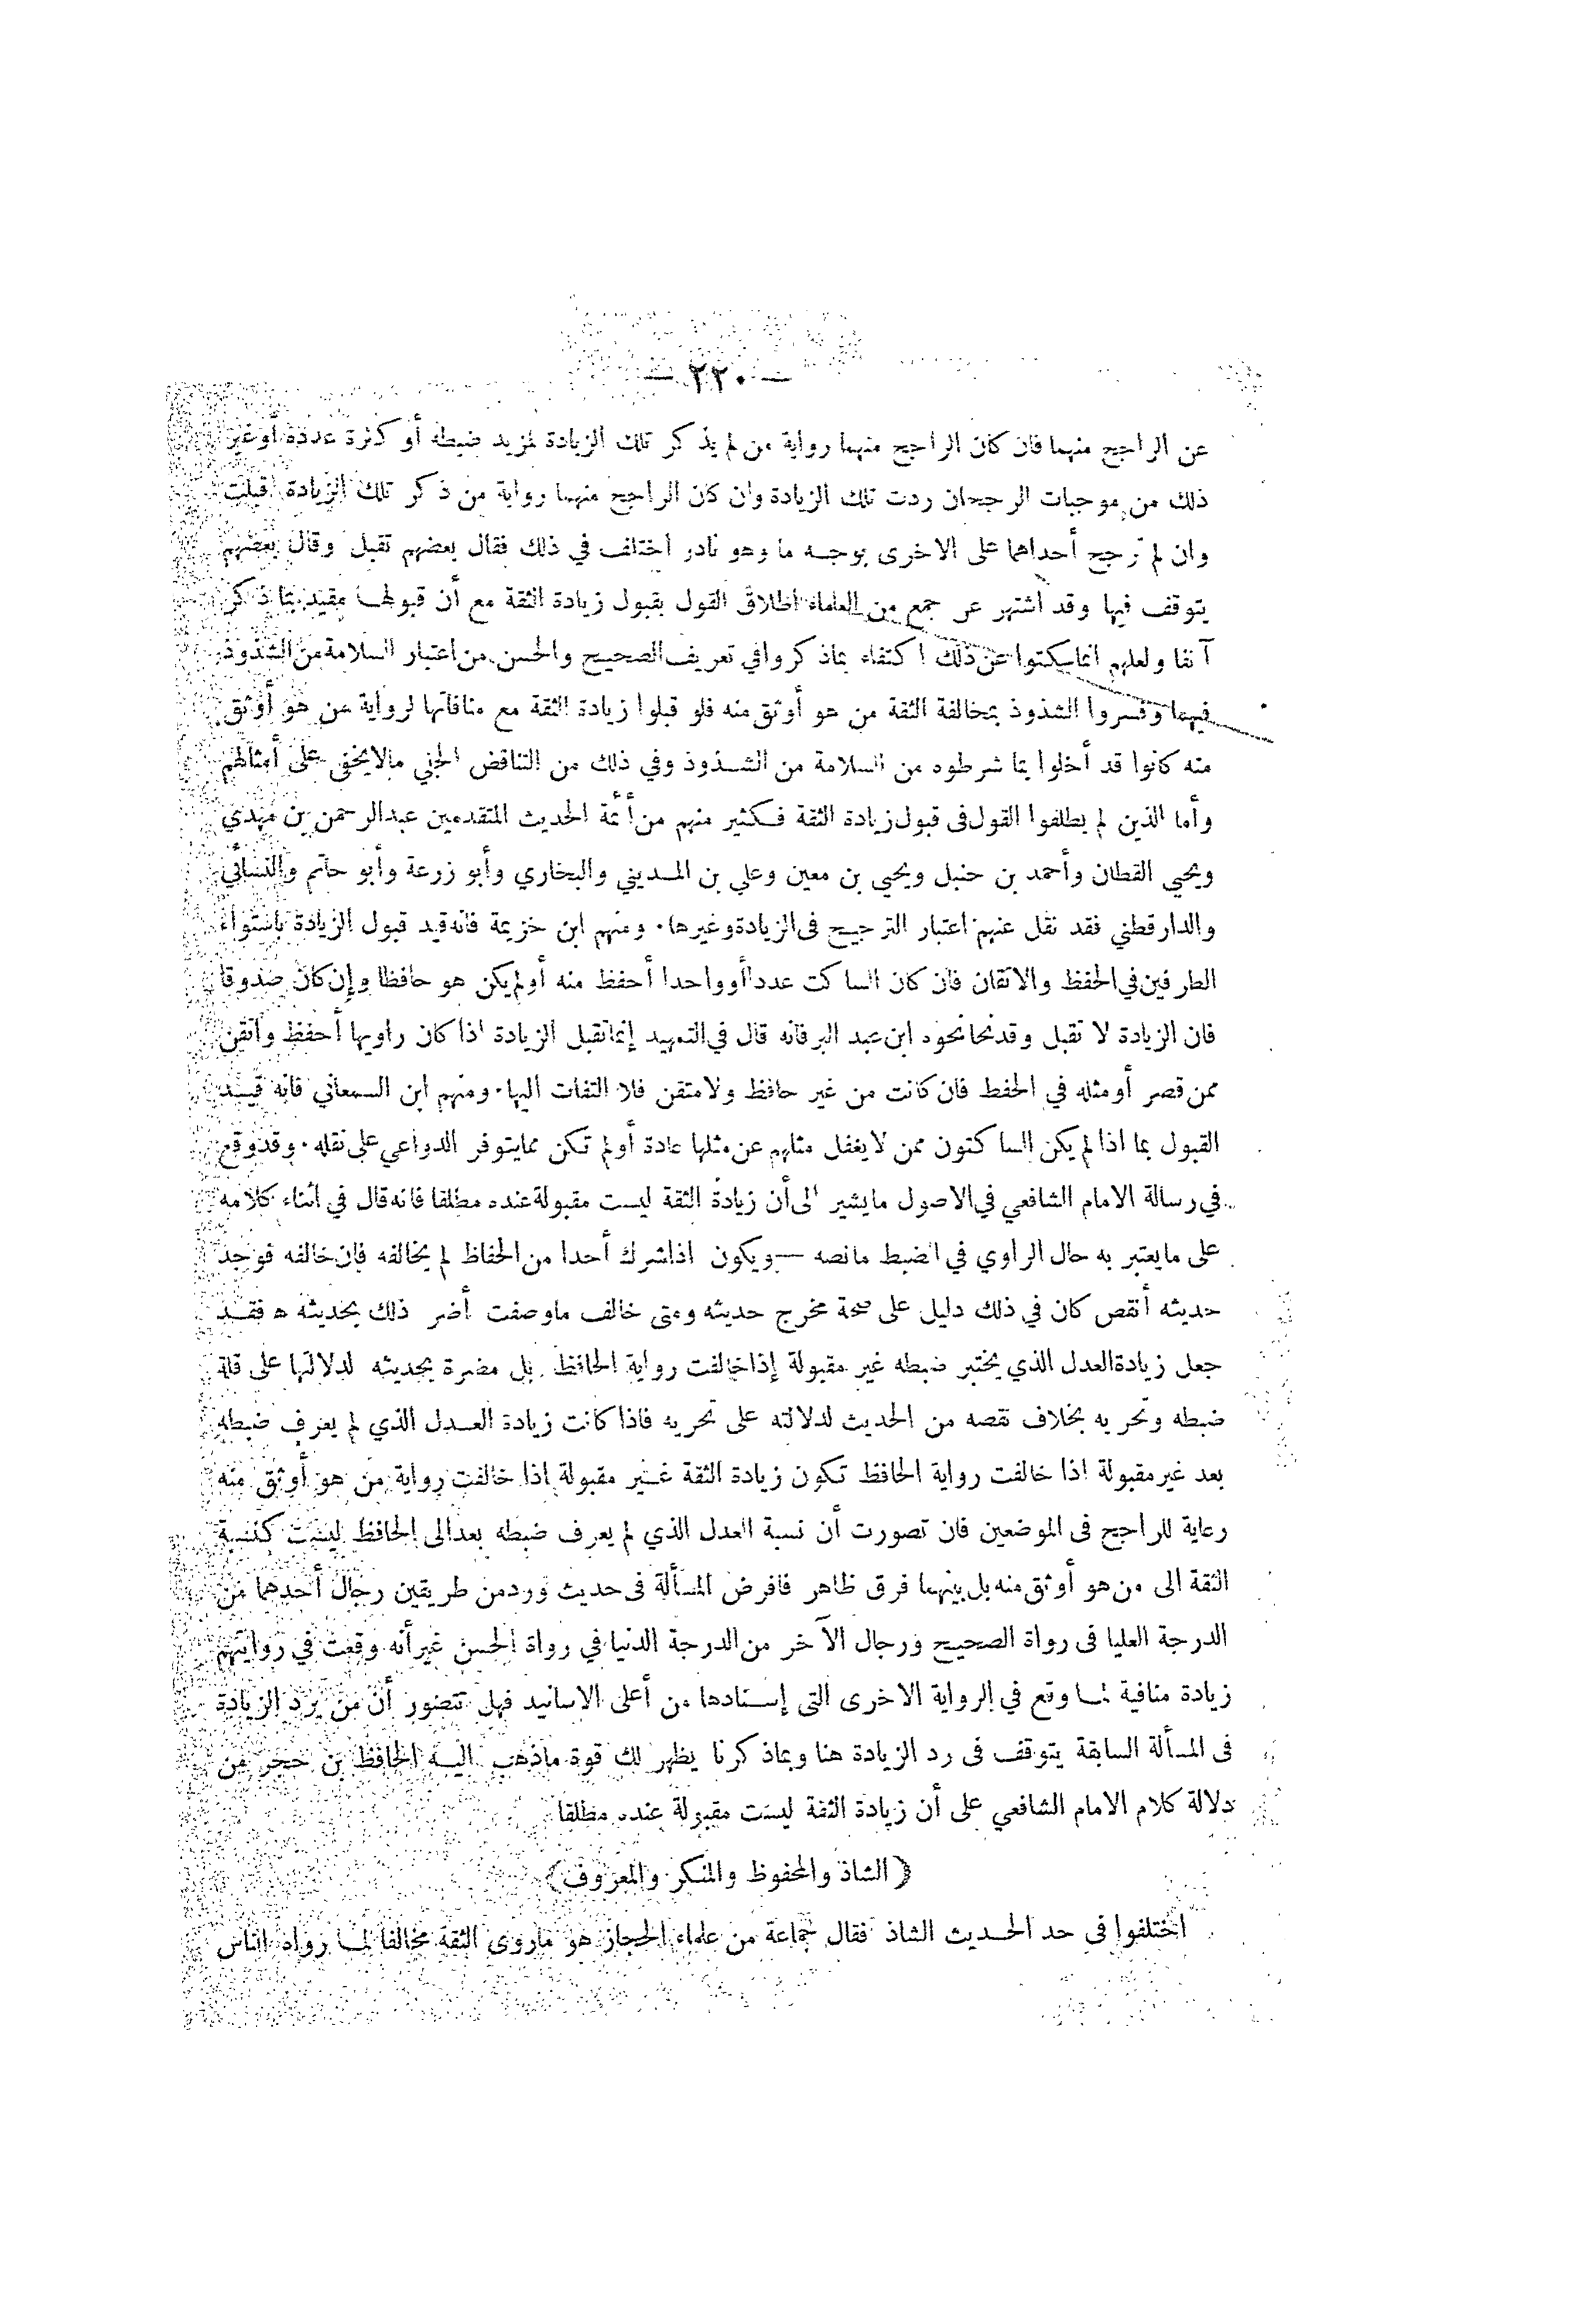 — ٢٢٠ —
عن الراجح منهما فان كان الراجح منهما رواية من لم يذكر تلك الزيادة لمزيد ضبطه أو كثرة عدده أو غير
ذلك من موجبات الرجحان ردت تلك الزيادة وان كان الراجح منهما رواية من ذكر تلك الزيادة قبلت
وان لم ترجح أحداهما على الاخرى بوجه ما وهو نادر اختلف في ذلك فقال بعضهم تقبل وقال بعضهم
يتوقف فيها وقد اشتهر عن جمع من العلماء اطلاق القول بقبول زيادة الثقة مع أن قبولها مقيد بما ذكر
آنفا ولعلهم انما سكتوا عن ذلك اكتفاء بما ذكروا في تعريف الصحيح والحسن من اعتبار السلامة من الشذوذ
فيهما وفسروا الشذوذ بمخالفة الثقة من هو أوثق منه فلو قبلوا زيادة الثقة مع منافاتها لرواية من هو أوثق
منه كانوا قد أخلوا بما شرطوه من السلامة من الشذوذ وفي ذلك من التناقض الجلي مالا يخفى على أمثالهم
وأما الذين لم يطلقوا القول فى قبول زيادة الثقة فكثير منهم من أئمة الحديث المتقدمين عبد الرحمن بن مهدي
ويحيي القطان وأحمد بن حنبل ويحيي بن معين وعلي بن المديني والبخاري وأبو زرعة وأبو حاتم والنسائي
والدارقطني فقد نقل عنهم اعتبار الترجيح فى الزيادة وغيرها. ومنهم ابن خزيمة فانه قيد قبول الزيادة باستواء
الطرفين في الحفظ والاتقان فان كان الساكت عددا أو واحدا أحفظ منه أو لم يكن هو حافظا وإن كان صدوقا
فان الزيادة لا تقبل وقد نحا نحوه ابن عبد البر فانه قال في التمهيد إنما تقبل الزيادة اذا كان راويها أحفظ وأتقن
ممن قصر أو مثله في الحفظ فان كانت من غير حافظ ولا متقن فلا التفات اليها. ومنهم ابن السمعاني فانه قيد
القبول بما اذا لم يكن الساكتون ممن لا يغفل مثلهم عن مثلها عادة أو لم تكن مما يتوفر الدواعي على نقله. وقد وقع
في رسالة الامام الشافعي في الاصول ما يشير الى أن زيادة الثقة ليست مقبولة عنده مطلقا فانه قال في اثناء كلامه
على ما يعتبر به حال الراوي في الضبط ما نصه — ويكون اذا شرك أحدا من الحفاظ لم يخالفه فإن خالفه فوجد
حديثه أنقص كان في ذلك دليل على صحة مخرج حديثه ومتى خالف ما وصفت أضر ذلك بحديثه ه فقد
جعل زيادة العدل الذي يختبر ضبطه غير مقبولة إذا خالفت رواية الحافظ بل مضرة بحديثه لدلالتها على قلة
ضبطه وتحريه بخلاف نقصه من الحديث لدلالته على تحريه فاذا كانت زيادة العدل الذي لم يعرف ضبطه
بعد غير مقبولة اذا خالفت رواية الحافظ تكون زيادة الثقة غير مقبولة اذا خالفت رواية من هو أوثق منه
رعاية للراجح فى الموضعين فان تصورت أن نسبة العدل الذي لم يعرف ضبطه بعد الى الحافظ ليست كنسبة
الثقة الى من هو أوثق منه بل بينهما فرق ظاهر فافرض المسألة فى حديث ورد من طريقين رجال أحدهما من
الدرجة العليا فى رواة الصحيح ورجال الآخر من الدرجة الدنيا في رواة الحسن غير أنه وقعت في روايتهم
زيادة منافية لما وقع في الرواية الاخرى التى إسنادها من أعلى الاسانيد فهل تتصور أن من يرد الزيادة
فى المسألة السابقة يتوقف فى رد الزيادة هنا وبما ذكرنا يظهر لك قوة ماذهب اليه الحافظ بن حجر من
دلالة كلام الامام الشافعي على أن زيادة الثقة ليست مقبولة عنده مطلقا
(الشاذ والمحفوظ والمنكر والمعروف)
اختلفوا فى حد الحديث الشاذ فقال جماعة من علماء الحجاز هو ماروى الثقة مخالفا لما رواه الناس